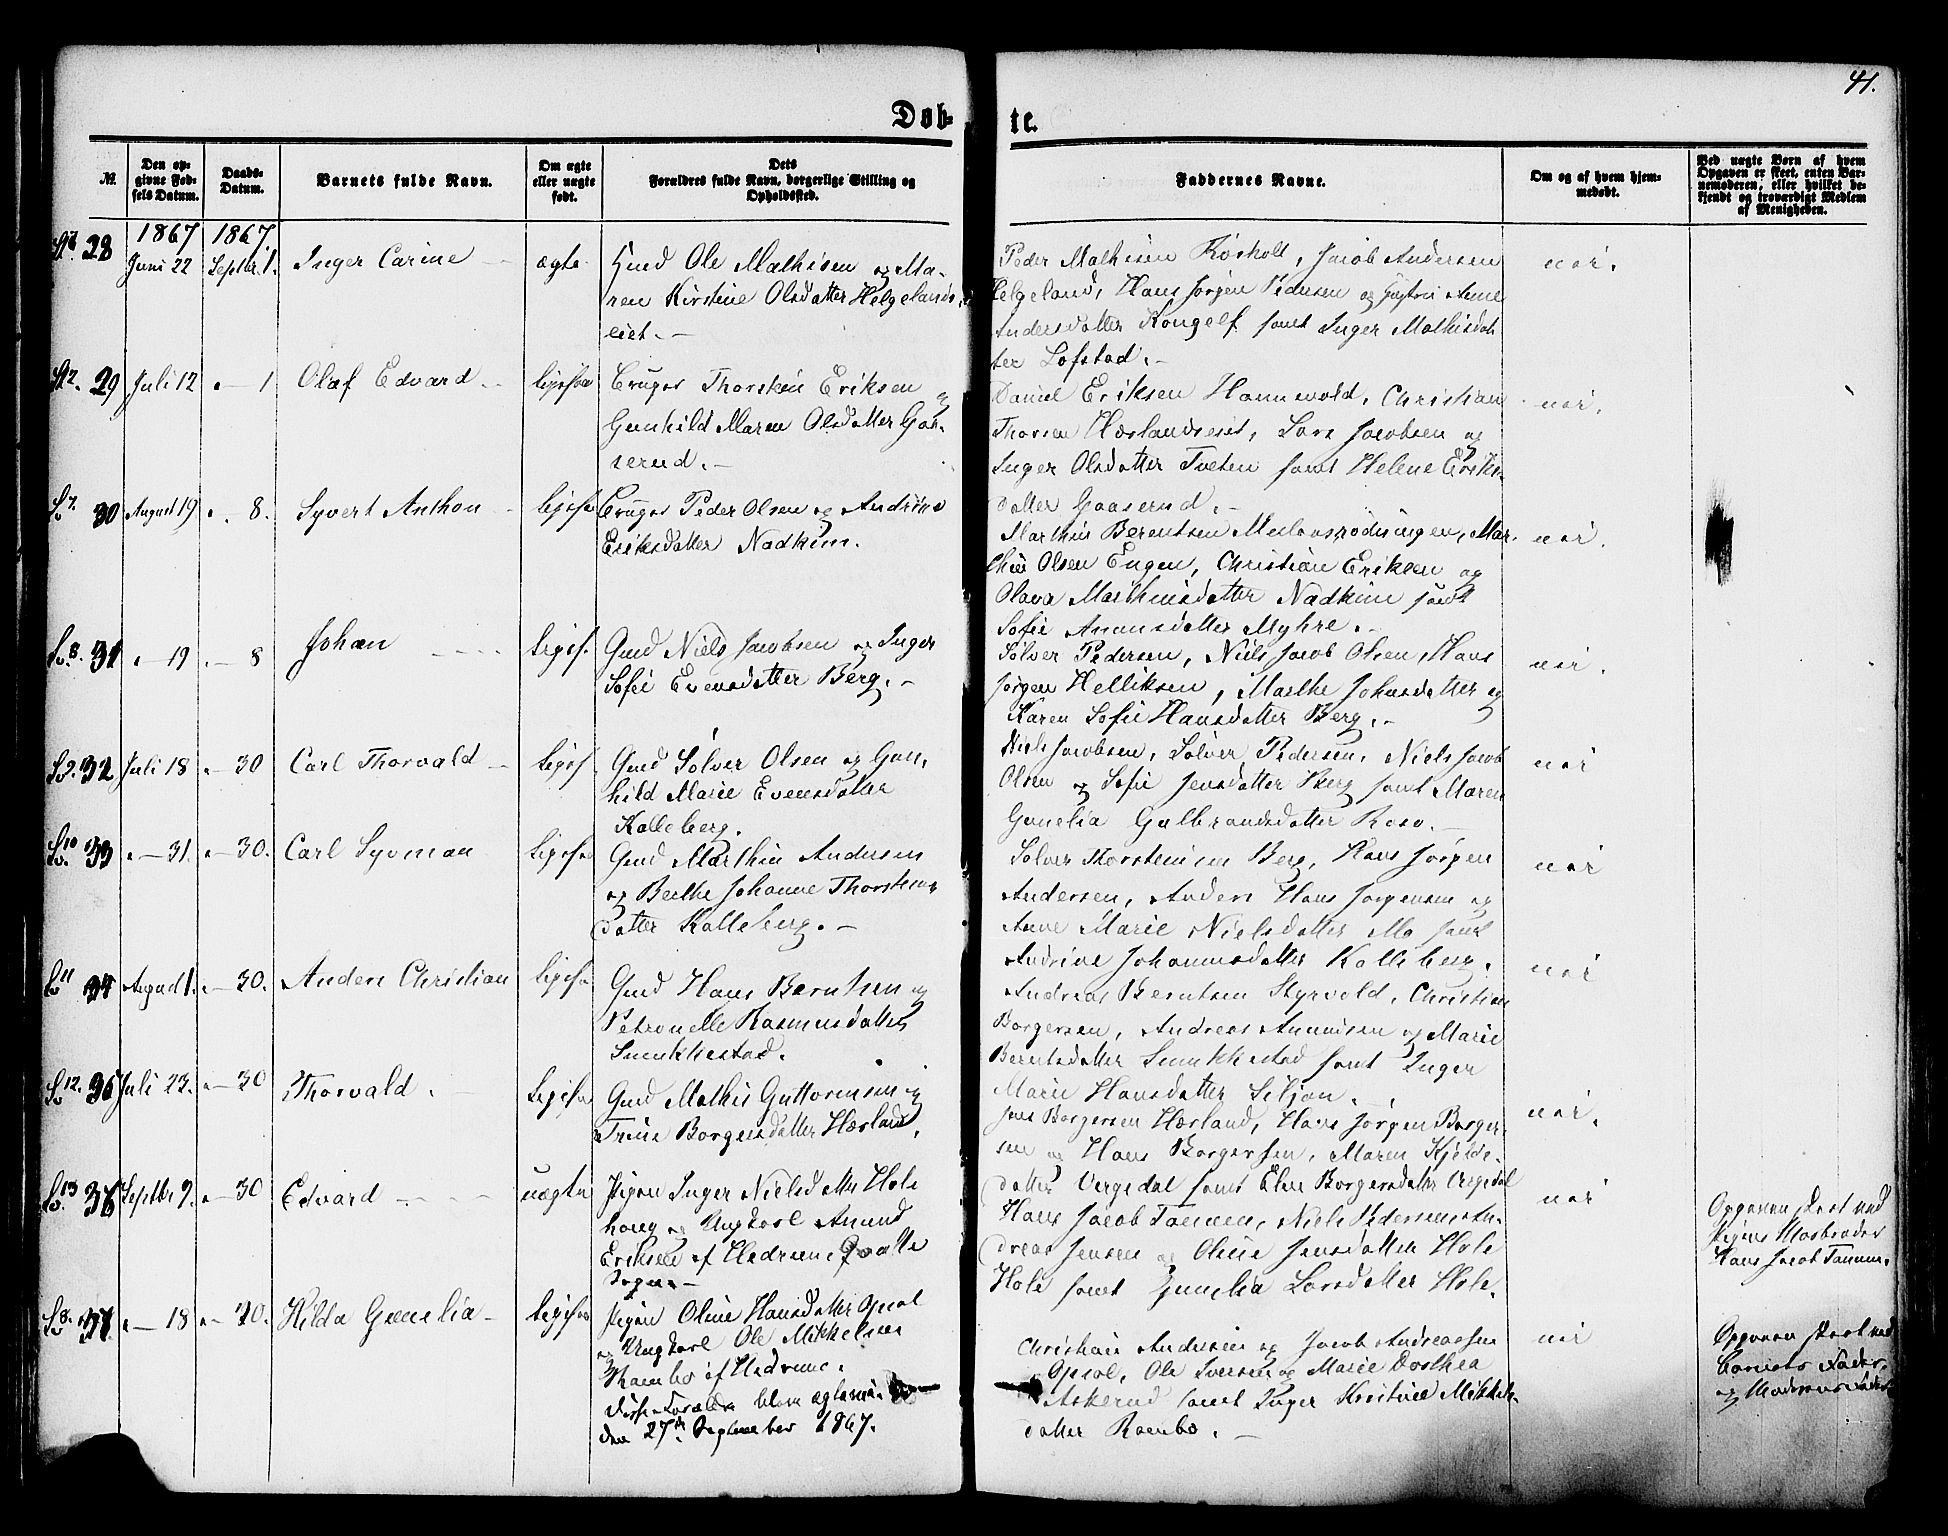 41.
Døb-
te.
№.
Den op-
givne Fød-
sels Datum.
Daabs-
Datum.
Barnets fulde Navn.
Om ægte
eller uægte
født.
Dets
Forældres fulde Navn, borgerlige Stilling og
Opholdssted.
Faddernes Navne.
Om og af hvem hjem-
medøbt.
Ved uægte Børn af hvem
Opgaven er skeet, enten Bar-
nemoderen, eller hvilket be-
kjendt og troværdigt Medlem
af Menigheden.
1867 1867.
28 Juni 22 Septbr. 1. Inger Carine ægte
Gmd Ole Mathisen og Ma-
ren Kirstine Olsdatter Helgelands-
eiet. -
Peder Mathisen Røsholt, Jacob Andersen
Helgeland, Hans Jørgen Pedersen og Anne
Andersdatter Kongelf samt Inger Mathisdat
ter Lofstad. -
nei.
29 Juli 12 " - 1 Olaf Edvard -
Bruger Thorsten Eriksen og
Gunhild Maren Olsdatter Gaa-
serud. -
Daniel Eriksen Hannevold, Christian
Thorsen Hærlandseiet, Lars Jacobsen og
Inger Olsdatter Tveten samt Helene Eriks-
datter Gaaserud. -
nei.
30 August 19 " - 8. Syvert Anthon
Bruger Peder Olsen og Andrine
Eriksdatter Nadkim.
Marthin Berentsen Medaasrødningen, Mar-
thin Olsen Engen, Christian Eriksen og
Olava Marthinsdatter Nadkim samt
Sofie Amunsdatter Myhre. -
nei.
31 " - 19 " - 8 Johan
Gmd Niels Jacobsen og Inger
Sofie Evensdatter Berg. -
Sølver Pedersen, Niels Jacob Olsen, Hans
Jørgen Helliksen, Marthe Johnsdatter og
Karen Sofie Hansdatter Berg. -
nei.
32 Juli 18 " - 30 Carl Thorvald -
Gmd Sølver Olsen og Gun-
hild Marie Evensdatter
Kalleberg.
Niels Jacobsen, Sølver Pedersen, Niels Jacob
Olsen og Sofie Jensdatter Berg samt Maren
Gunelia Gulbrandsdatter Roso. -
nei
33 " - 31. " - 30. Carl Syvman
Gmd Marthin Andersen
og Berthe Johanne Thorstens-
datter Kalleberg. -
Sølver Thorstensen Berg, Hans Jørgen
Andersen, Anders Hans Jørgensen og
Anne Marie Nielsdatter Mo samt
Andrine Johannesdatter Kalleberg.
nei
34 August 1. " - 30. Anders Christian
Gmd Hans Berntsen og
Petronelle Rasmusdatter
Smukkestad.
Andreas Berntsen Styrvold, Christian
Borgersen, Andreas Amundsen og Marie
Berntsdatter Smukkestad samt Inger
Marie Hansdatter Siljan. -
nei
35 Juli 23. " - 30 Thorvald.
Gmd Mathis Guttormsen og
Trine Borgersdatter Hærland.
Jens Borgersen Hærland, Hans Jørgen Borger-
sen og Hans Borgersen, Maren Kjølds-
datter Vergedal samt Elen Borgersdatter Vergedal
nei.
36 Septbr 9. " - 30 Edvard - uægte
Pigen Inger Nielsdatter Hole
haug og Ungkarl Amund
Eriksen af Hedrum Qvelle
Sogn. -
Hans Jacob Tanum, Niels Pedersen An-
dreas Jensen og Oline Jensdatter Hole
Hole samt Gunelia Larsdatter Hole.
nei
Opgaven skeet ved
Pigens Morbroder
Hans Jacob Tanum.
37 " - 18 " - 20. Hilda Gunelia -
Pigen Oline Hansdatter Opsal
og Ungkarl Ole Mikkelsen
Rambo af Hedrum.
disse Forældre bleve ægteviede
den 27de September 1867.
Christian Andersen og Jacob Andreassen
Opsal, Ole Iversen og Marie Dorthea
Askerud samt Inger Kirstine Mikkels-
datter Rambo. -
nei
Opgaven skeet ved
Barnets Fader,
og Moderens Fader